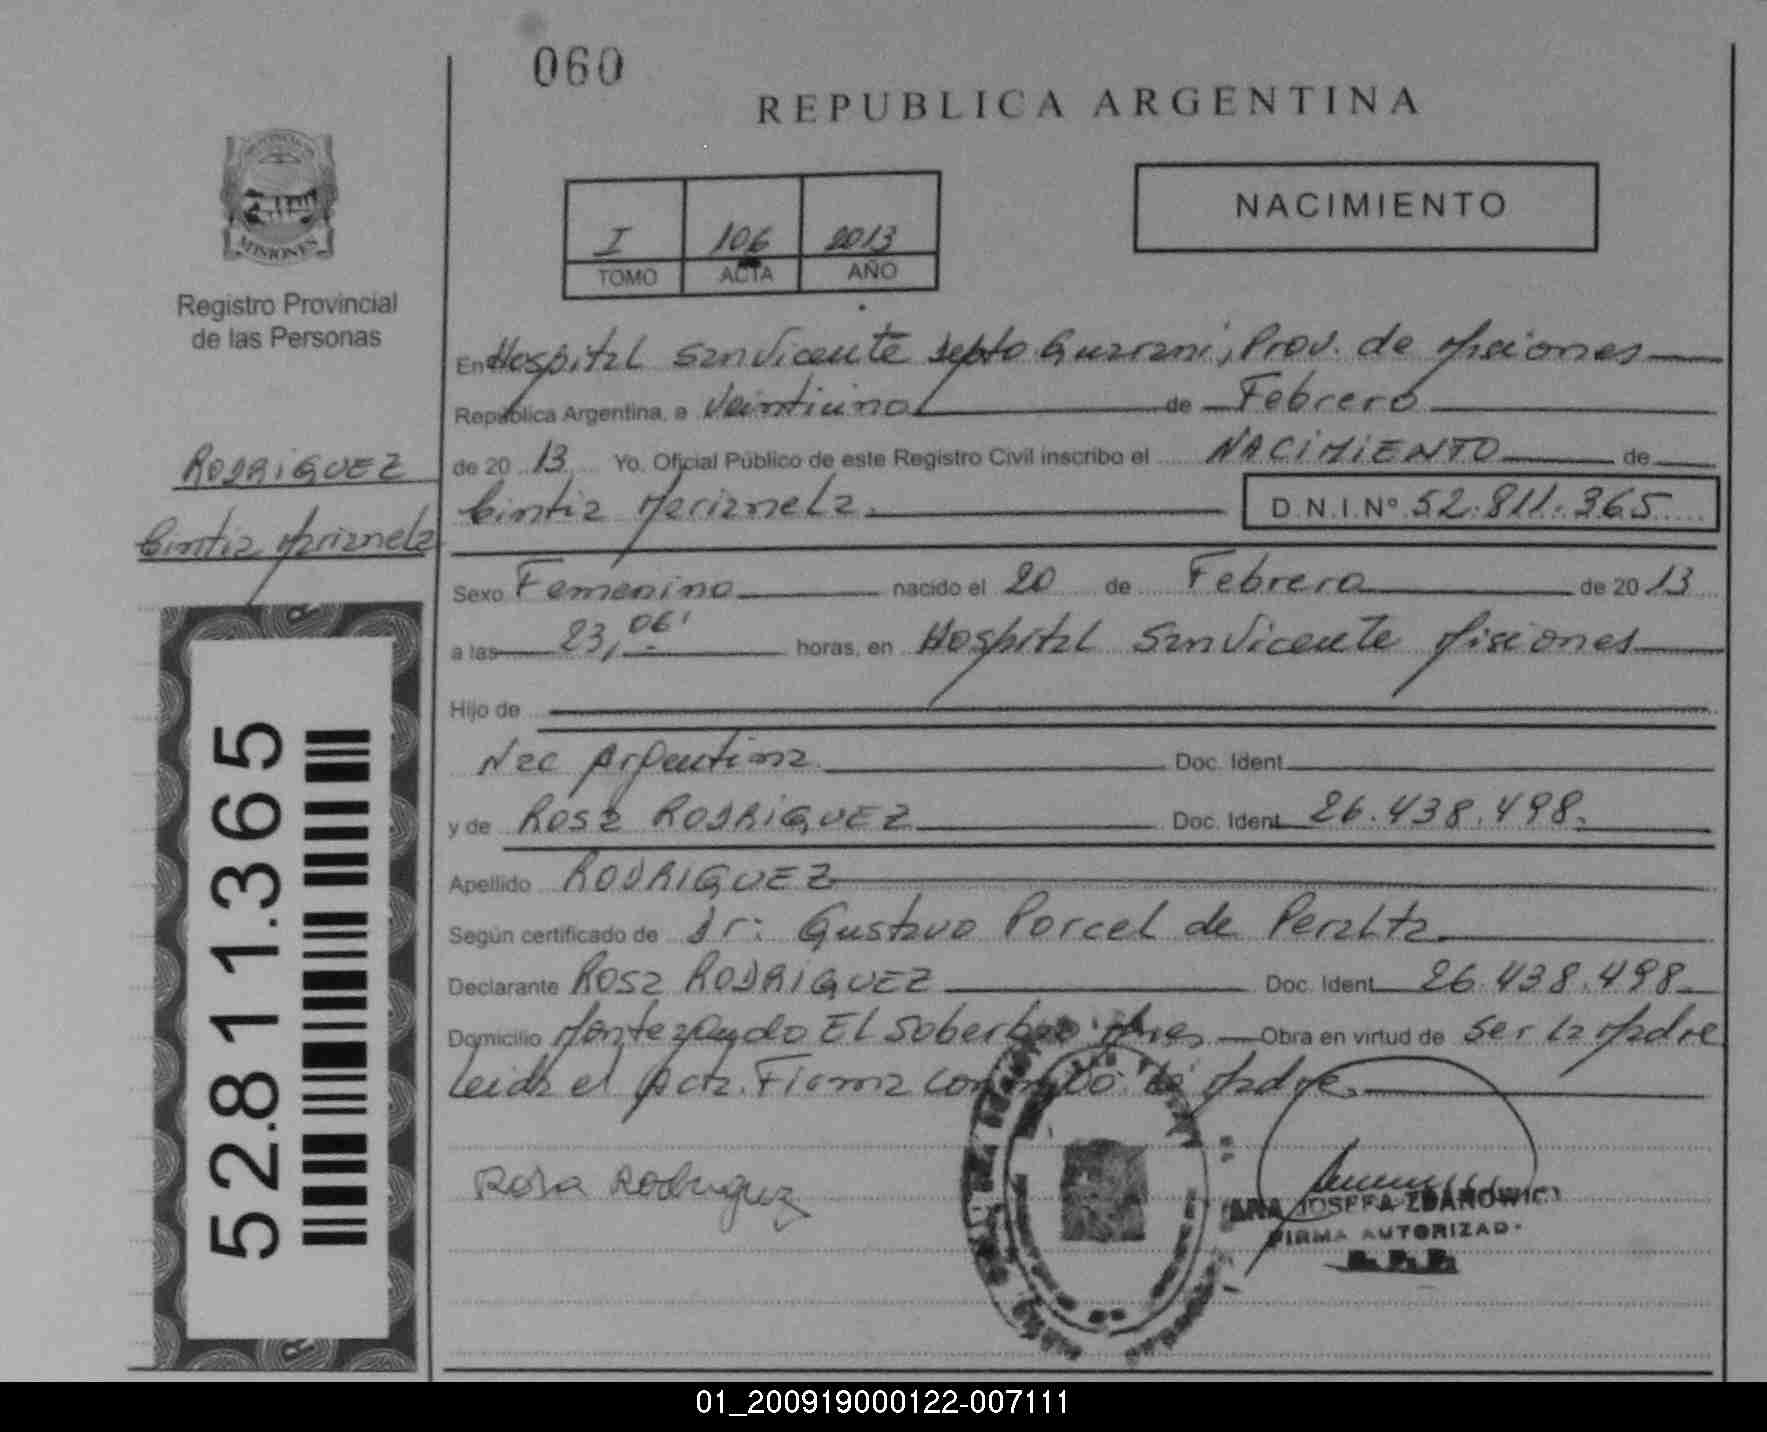 060
REPUBLICA ARGENTINA
NACIMIENTO
I 106 2013
TOMO ACTA AÑO
MISIONES
Registro Provincial
de las Personas
RODRIGUEZ
Cintia Marianela
52.811.365
En Hospital San Vicente Depto Guarani, Prov. de Misiones
República Argentina, a Veintiuno de Febrero
de 20 13 Yo, Oficial Público de este Registro Civil inscribo el NACIMIENTO de
Cintia Marianela. D.N.I. Nº 52.811.365
Sexo Femenino nacido el 20 de Febrero de 20 13
a las 23,06' horas, en Hospital San Vicente Misiones
Hijo de
Nac Argentina Doc. Ident.
y de Rosa RODRIGUEZ Doc. Ident. 26.438.498.
Apellido RODRIGUEZ
Según certificado de Dr: Gustavo Porcel de Peralta.
Declarante Rosa RODRIGUEZ Doc. Ident. 26.438.498.
Domicilio El Soberbio Mnes Obra en virtud de Ser la Madre
Leida el Acta. Firma la Madre.
Rosa Rodriguez
ANA JOSEFA ZDANOWICZ
FIRMA AUTORIZAD
01_200919000122-007111